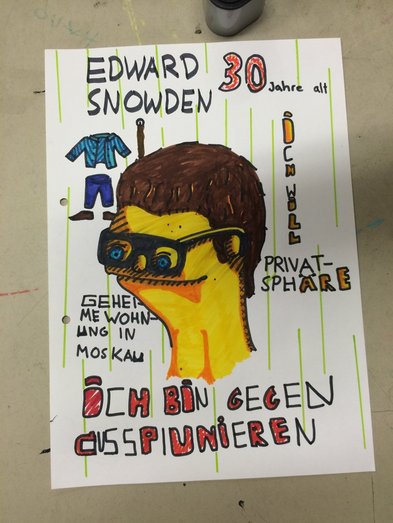 EDWARD
SNOWDEN
30 Jahre alt
iCH WiLL
PRIVAT-
SPHÄRE
GEHEI-
MEWOHN-
UNG IN
MOSKAU
iCH BiN GEGEN
AUSSPiUNiEREN